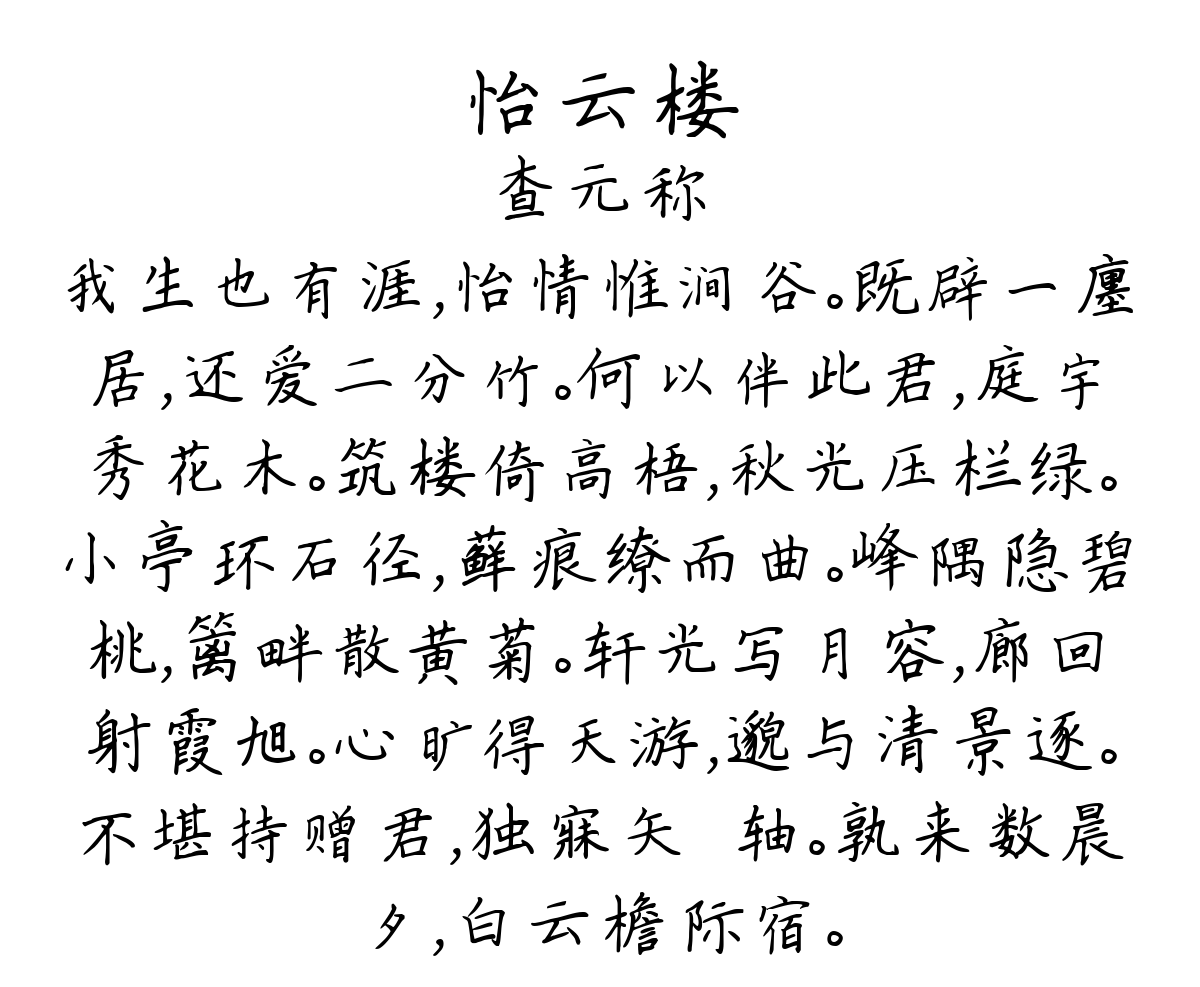 怡云楼
查元称
我生也有涯,怡情惟涧谷。既辟一廛
居,还爱二分竹。何以伴此君,庭宇
秀花木。筑楼倚高梧,秋光压栏绿。
小亭环石径,藓痕缭而曲。峰隅隐碧
桃,篱畔散黄菊。轩光写月容,廊回
射霞旭。心旷得天游,邈与清景逐。
不堪持赠君,独寐矢 轴。孰来数晨
夕,白云檐际宿。